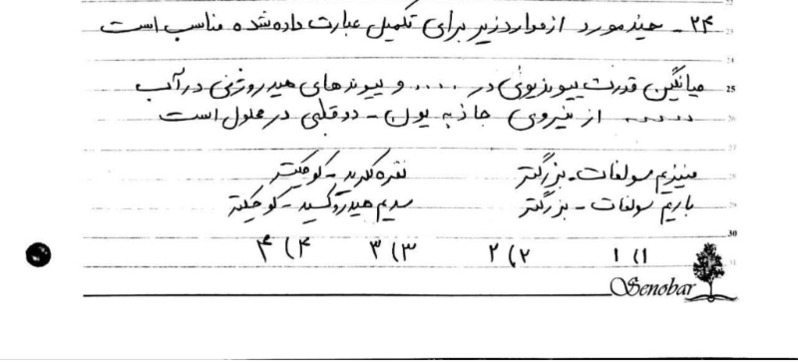 ۲۴ - چند مورد از موارد زیر برای تکمیل عبارت داده شده مناسب است
میانگین قدرت پیوند یونی در .... و پیوندهای هیدروژنی در آب
...... از نیروی جاذبه یون - دوقطبی در محلول است
منیزیم سولفات - بزرگتر نقره کلرید - کوچکتر
باریم سولفات - بزرگتر سدیم هیدروکسید - کوچکتر
۱) ۱ ۲) ۲ ۳) ۳ ۴) ۴
Senobar